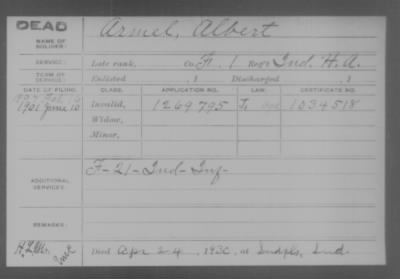 DEAD
NAME OF SOLDIER: Armel, Albert
SERVICE: Late rank, Co. F. 1 Reg't Ind. H. A.
TERM OF SERVICE: Enlisted , 1 Discharged , 1
DATE OF FILING. CLASS. APPLICATION NO. LAW. CERTIFICATE NO.
1901 June 10 Invalid, 1269795 1034518
Widow,
Minor,
ADDITIONAL SERVICES: F-21-Ind-Inf-
REMARKS:
Died Apr 24, 1930, at Indpls, Ind.